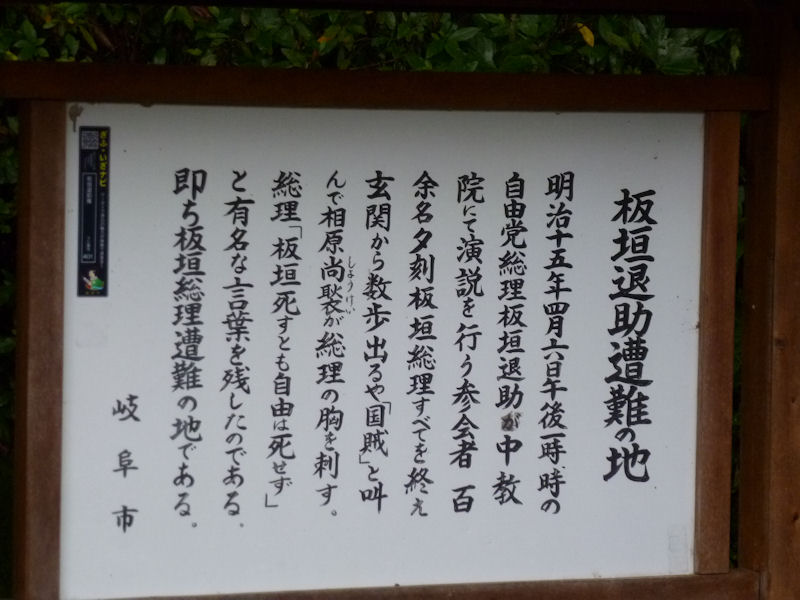 板垣退助遭難の地
明治十五年四月六日午後一時、時の
自由党総理板垣退助が中教
院にて演説を行う参会者 百
余名夕刻板垣総理すべてを終え
玄関から数歩出るや「国賊」と叫
しょうけい
んで相原尚褧が総理の胸を刺す。
総理「板垣死すとも自由は死せず」
と有名な言葉を残したのである、
即ち板垣総理遭難の地である。
岐阜市
ぎふ・いざナビ